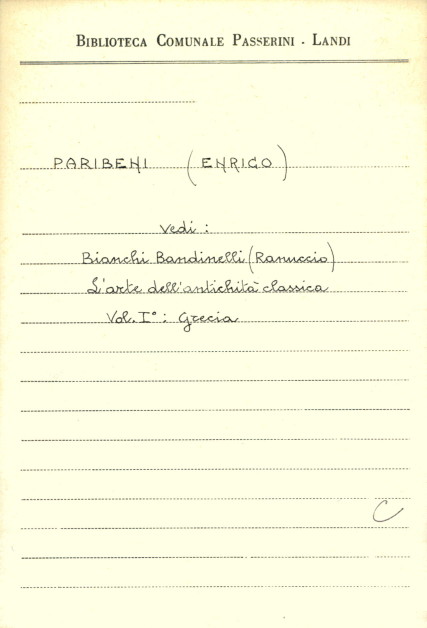 BIBLIOTECA COMUNALE PASSERINI - LANDI
PARIBENI (ENRICO)
Vedi:
Bianchi Bandinelli (Ranuccio)
L'arte dell'antichità classica
Vol. I°: Grecia
C